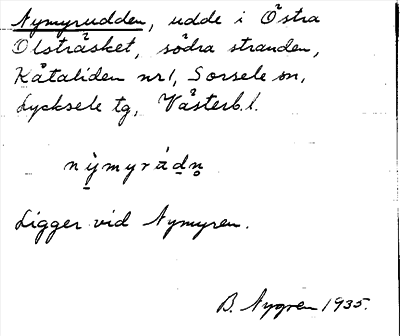 Nymyrudden, udde i Östra
Olsträsket, södra stranden,
Kåtaliden nr 1, Sorsele sn,
Lycksele tg, Västerb. l.
nỳmyrádn̥
Ligger vid Nymyren.
B. Nygren 1935.